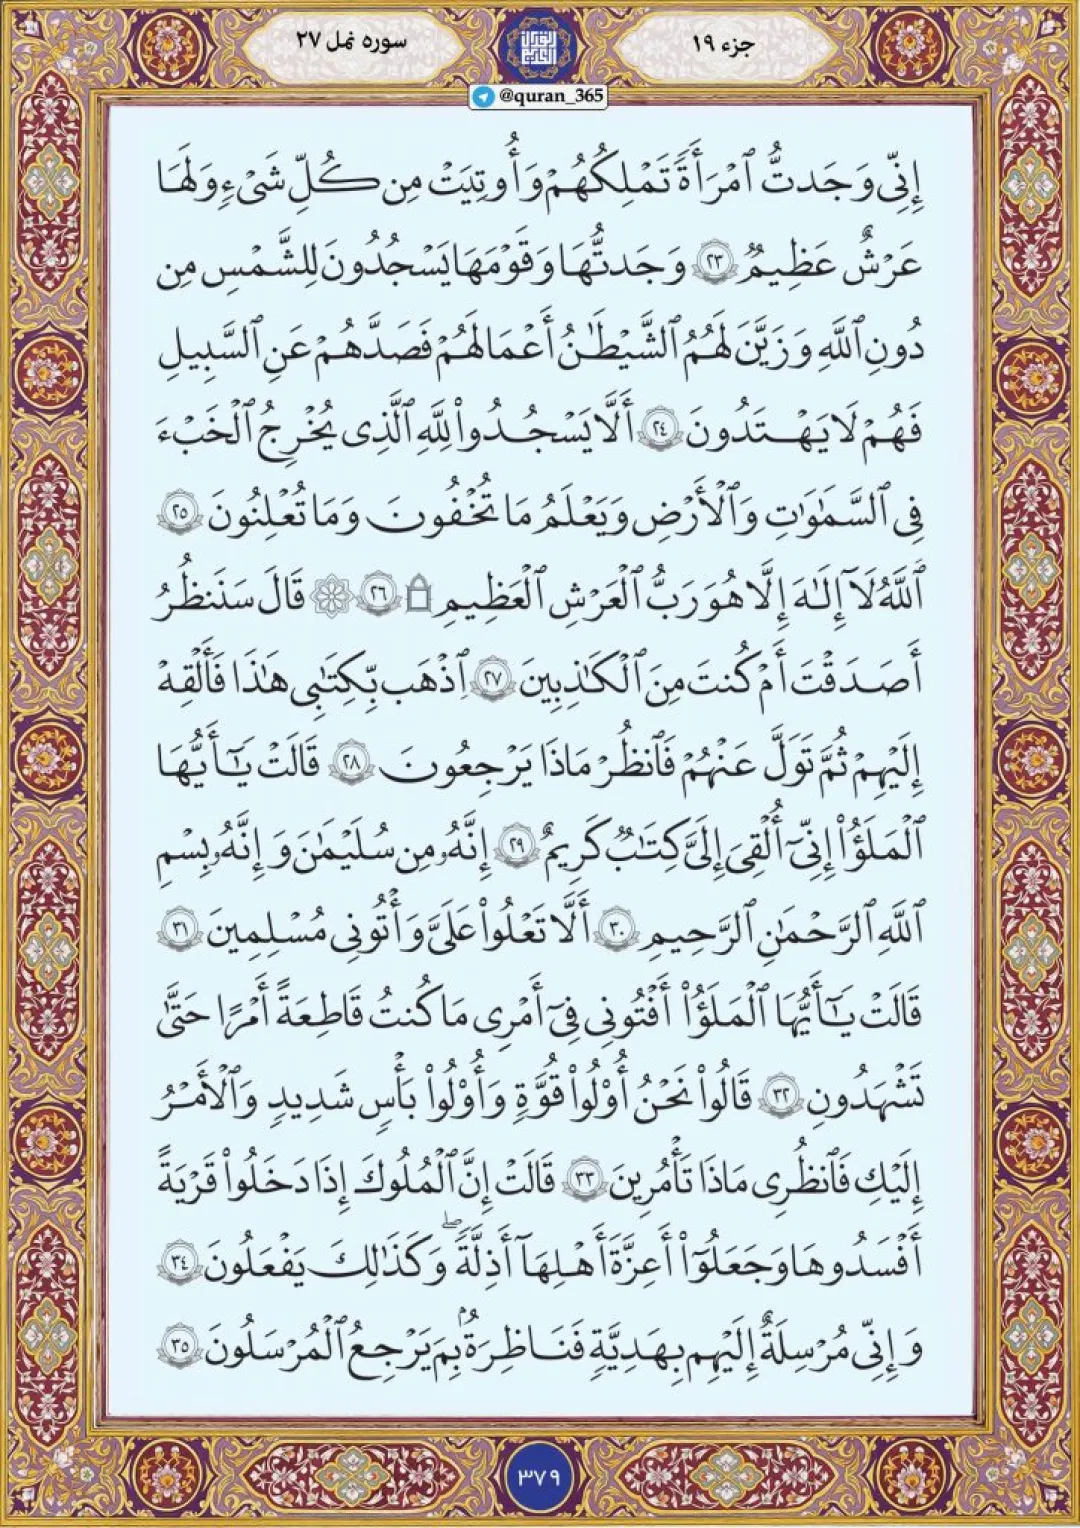 جزء ۱۹
سوره نمل ۲۷
@quran_365
إِنِّي وَجَدتُّ ٱمْرَأَةً تَمْلِكُهُمْ وَأُوتِيَتْ مِن كُلِّ شَيْءٍ وَلَهَا
عَرْشٌ عَظِيمٌ ٢٣ وَجَدتُّهَا وَقَوْمَهَا يَسْجُدُونَ لِلشَّمْسِ مِن
دُونِ ٱللَّهِ وَزَيَّنَ لَهُمُ ٱلشَّيْطَٰنُ أَعْمَٰلَهُمْ فَصَدَّهُمْ عَنِ ٱلسَّبِيلِ
فَهُمْ لَا يَهْتَدُونَ ٢٤ أَلَّا يَسْجُدُوا۟ لِلَّهِ ٱلَّذِي يُخْرِجُ ٱلْخَبْءَ
فِي ٱلسَّمَٰوَٰتِ وَٱلْأَرْضِ وَيَعْلَمُ مَا تُخْفُونَ وَمَا تُعْلِنُونَ ٢٥
ٱللَّهُ لَآ إِلَٰهَ إِلَّا هُوَ رَبُّ ٱلْعَرْشِ ٱلْعَظِيمِ ۩ ٢٦ ۞ قَالَ سَنَنظُرُ
أَصَدَقْتَ أَمْ كُنتَ مِنَ ٱلْكَٰذِبِينَ ٢٧ ٱذْهَب بِّكِتَٰبِي هَٰذَا فَأَلْقِهْ
إِلَيْهِمْ ثُمَّ تَوَلَّ عَنْهُمْ فَٱنظُرْ مَاذَا يَرْجِعُونَ ٢٨ قَالَتْ يَٰٓأَيُّهَا
ٱلْمَلَؤُا۟ إِنِّيٓ أُلْقِيَ إِلَيَّ كِتَٰبٌ كَرِيمٌ ٢٩ إِنَّهُۥ مِن سُلَيْمَٰنَ وَإِنَّهُۥ بِسْمِ
ٱللَّهِ ٱلرَّحْمَٰنِ ٱلرَّحِيمِ ٣٠ أَلَّا تَعْلُوا۟ عَلَيَّ وَأْتُونِي مُسْلِمِينَ ٣١
قَالَتْ يَٰٓأَيُّهَا ٱلْمَلَؤُا۟ أَفْتُونِي فِيٓ أَمْرِي مَا كُنتُ قَاطِعَةً أَمْرًا حَتَّىٰ
تَشْهَدُونِ ٣٢ قَالُوا۟ نَحْنُ أُو۟لُوا۟ قُوَّةٍ وَأُو۟لُوا۟ بَأْسٍ شَدِيدٍ وَٱلْأَمْرُ
إِلَيْكِ فَٱنظُرِي مَاذَا تَأْمُرِينَ ٣٣ قَالَتْ إِنَّ ٱلْمُلُوكَ إِذَا دَخَلُوا۟ قَرْيَةً
أَفْسَدُوهَا وَجَعَلُوٓا۟ أَعِزَّةَ أَهْلِهَآ أَذِلَّةً ۖ وَكَذَٰلِكَ يَفْعَلُونَ ٣٤
وَإِنِّي مُرْسِلَةٌ إِلَيْهِم بِهَدِيَّةٍ فَنَاظِرَةٌۢ بِمَ يَرْجِعُ ٱلْمُرْسَلُونَ ٣٥
۳۷۹